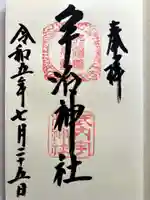 奉拝
宇治神社
令和五年七月二十五日